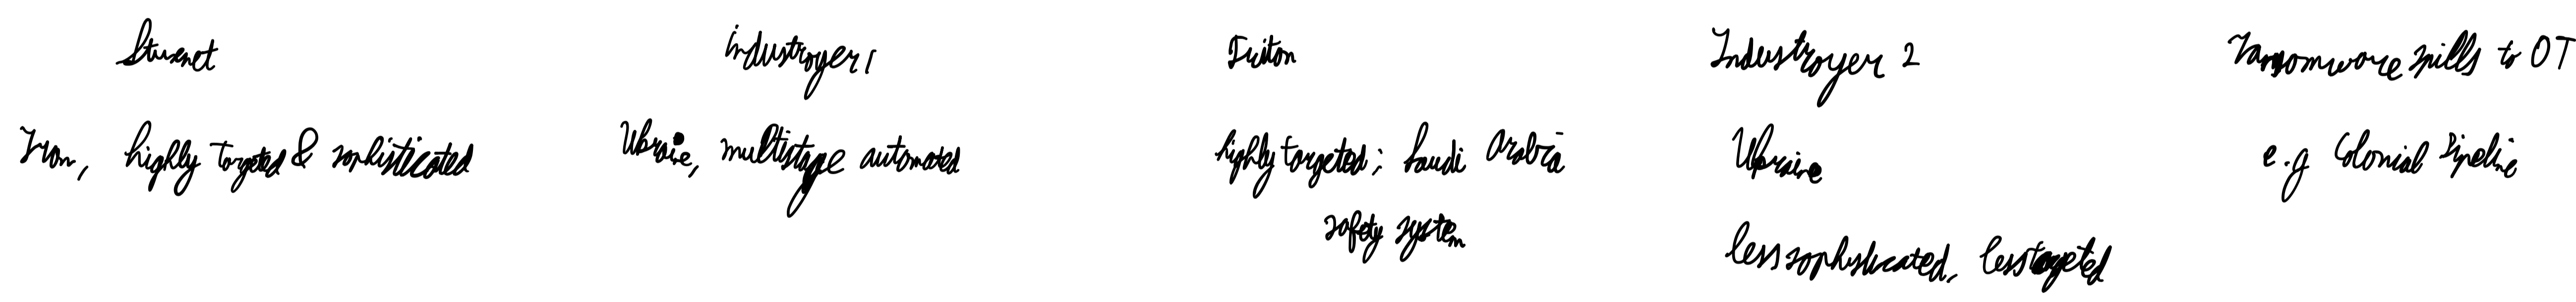 Stuxnet
Iran, highly targeted & sophisticated
industroyer 1
Ukraine, multistage automated
Triton
highly targeted; Saudi Arabia
safety system
Industroyer 2
Ukraine
less sophysticated, less targeted
ransomware spills to OT
e.g Colonial Pipeline